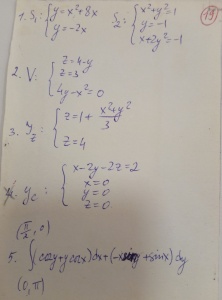 1. S₁: { y=x²+8x
y=-2x
S₂: { x²+y²=1
y=-1
x+2y²=-1
19
2. V: { z=4-y
z=3
4y-x²=0
3. { z=1+ (x²+y²)/3
z=4
4. y_c: { x-2y-2z=2
x=0
y=0
z=0
(π/2, 0)
5. ∫ (cosy+ycosx)dx+(-xsiny+sinx)dy
(0, π)